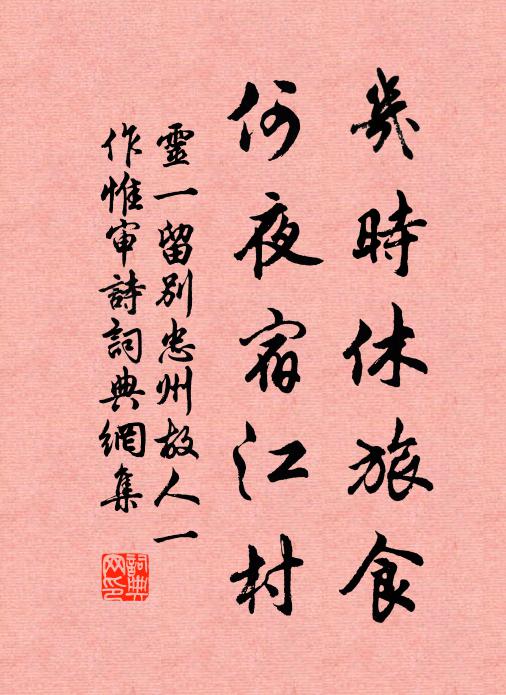 幾時休旅食
何夜宿江村
靈一留別忠州故人一
作惟审詩詞典網集
詞典网印